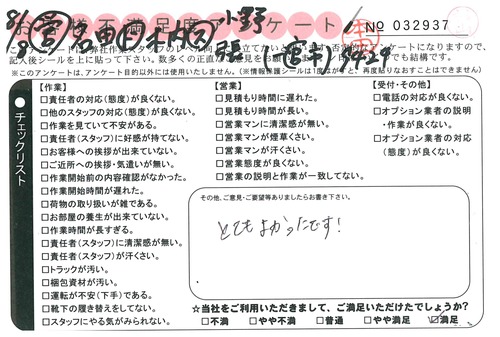 お客様不満足度アンケート No 032937
記入後シールを上に貼って下さい。
※このアンケートは、アンケート目的以外には使用いたしません。
チェックリスト
【作業】
□責任者の対応(態度)が良くない。
□他のスタッフの対応(態度)が良くない。
□作業を見ていて不安がある。
□責任者(スタッフ)に好感が持てない。
□お客様への挨拶が出来ていない。
□ご近所への挨拶・気遣いが無い。
□作業開始前の内容確認がなかった。
□作業開始時間が遅れた。
□荷物の取り扱いが雑である。
□お部屋の養生が出来ていない。
□作業時間が長すぎる。
□責任者(スタッフ)に清潔感が無い。
□責任者(スタッフ)が汗くさい。
□トラックが汚い。
□梱包資材が汚い。
□運転が不安(下手)である。
□靴下の履き替えをしてない。
□スタッフにやる気がみられない。
【営業】
□見積もり時間に遅れた。
□見積もり時間が長い。
□営業マンに清潔感が無い。
□営業マンが煙草くさい。
□営業マンが汗くさい。
□営業態度が良くない。
□営業の説明と作業が一致してない。
【受付・その他】
□電話の対応が良くない。
□オプション業者の説明
・作業が良くない。
□オプション業者の対応
(態度)が良くない。
その他、ご意見・ご要望等ありましたらお書き下さい。
とてもよかったです!
☆当社をご利用いただきまして、ご満足いただけたでしょうか?
□不満 □やや不満 □普通 □やや満足 ☑満足